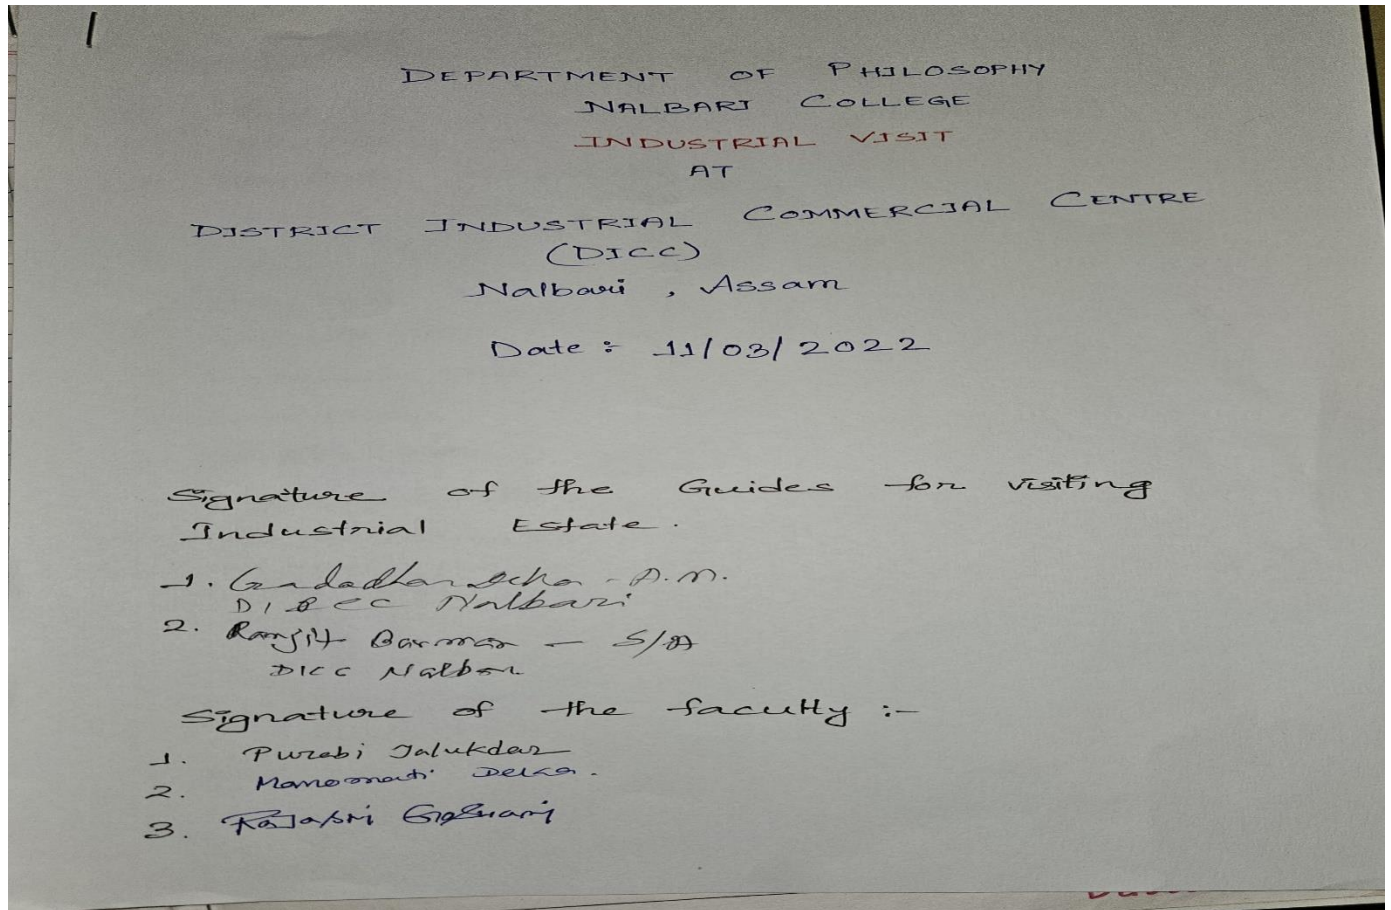 DEPARTMENT OF PHILOSOPHY
NALBARI COLLEGE
INDUSTRIAL VISIT
AT
DISTRICT INDUSTRIAL COMMERCIAL CENTRE
(DICC)
Nalbari , Assam
Date : 11/03/2022
Signature of the Guides for visiting
Industrial Estate .
1. Gadadhar - A.M.
Nalbari
2. Ranjit Barman - S/A
DICC
Signature of the faculty :-
1. Purabi Talukdar
2. Manomati Deka .
3. Goswami